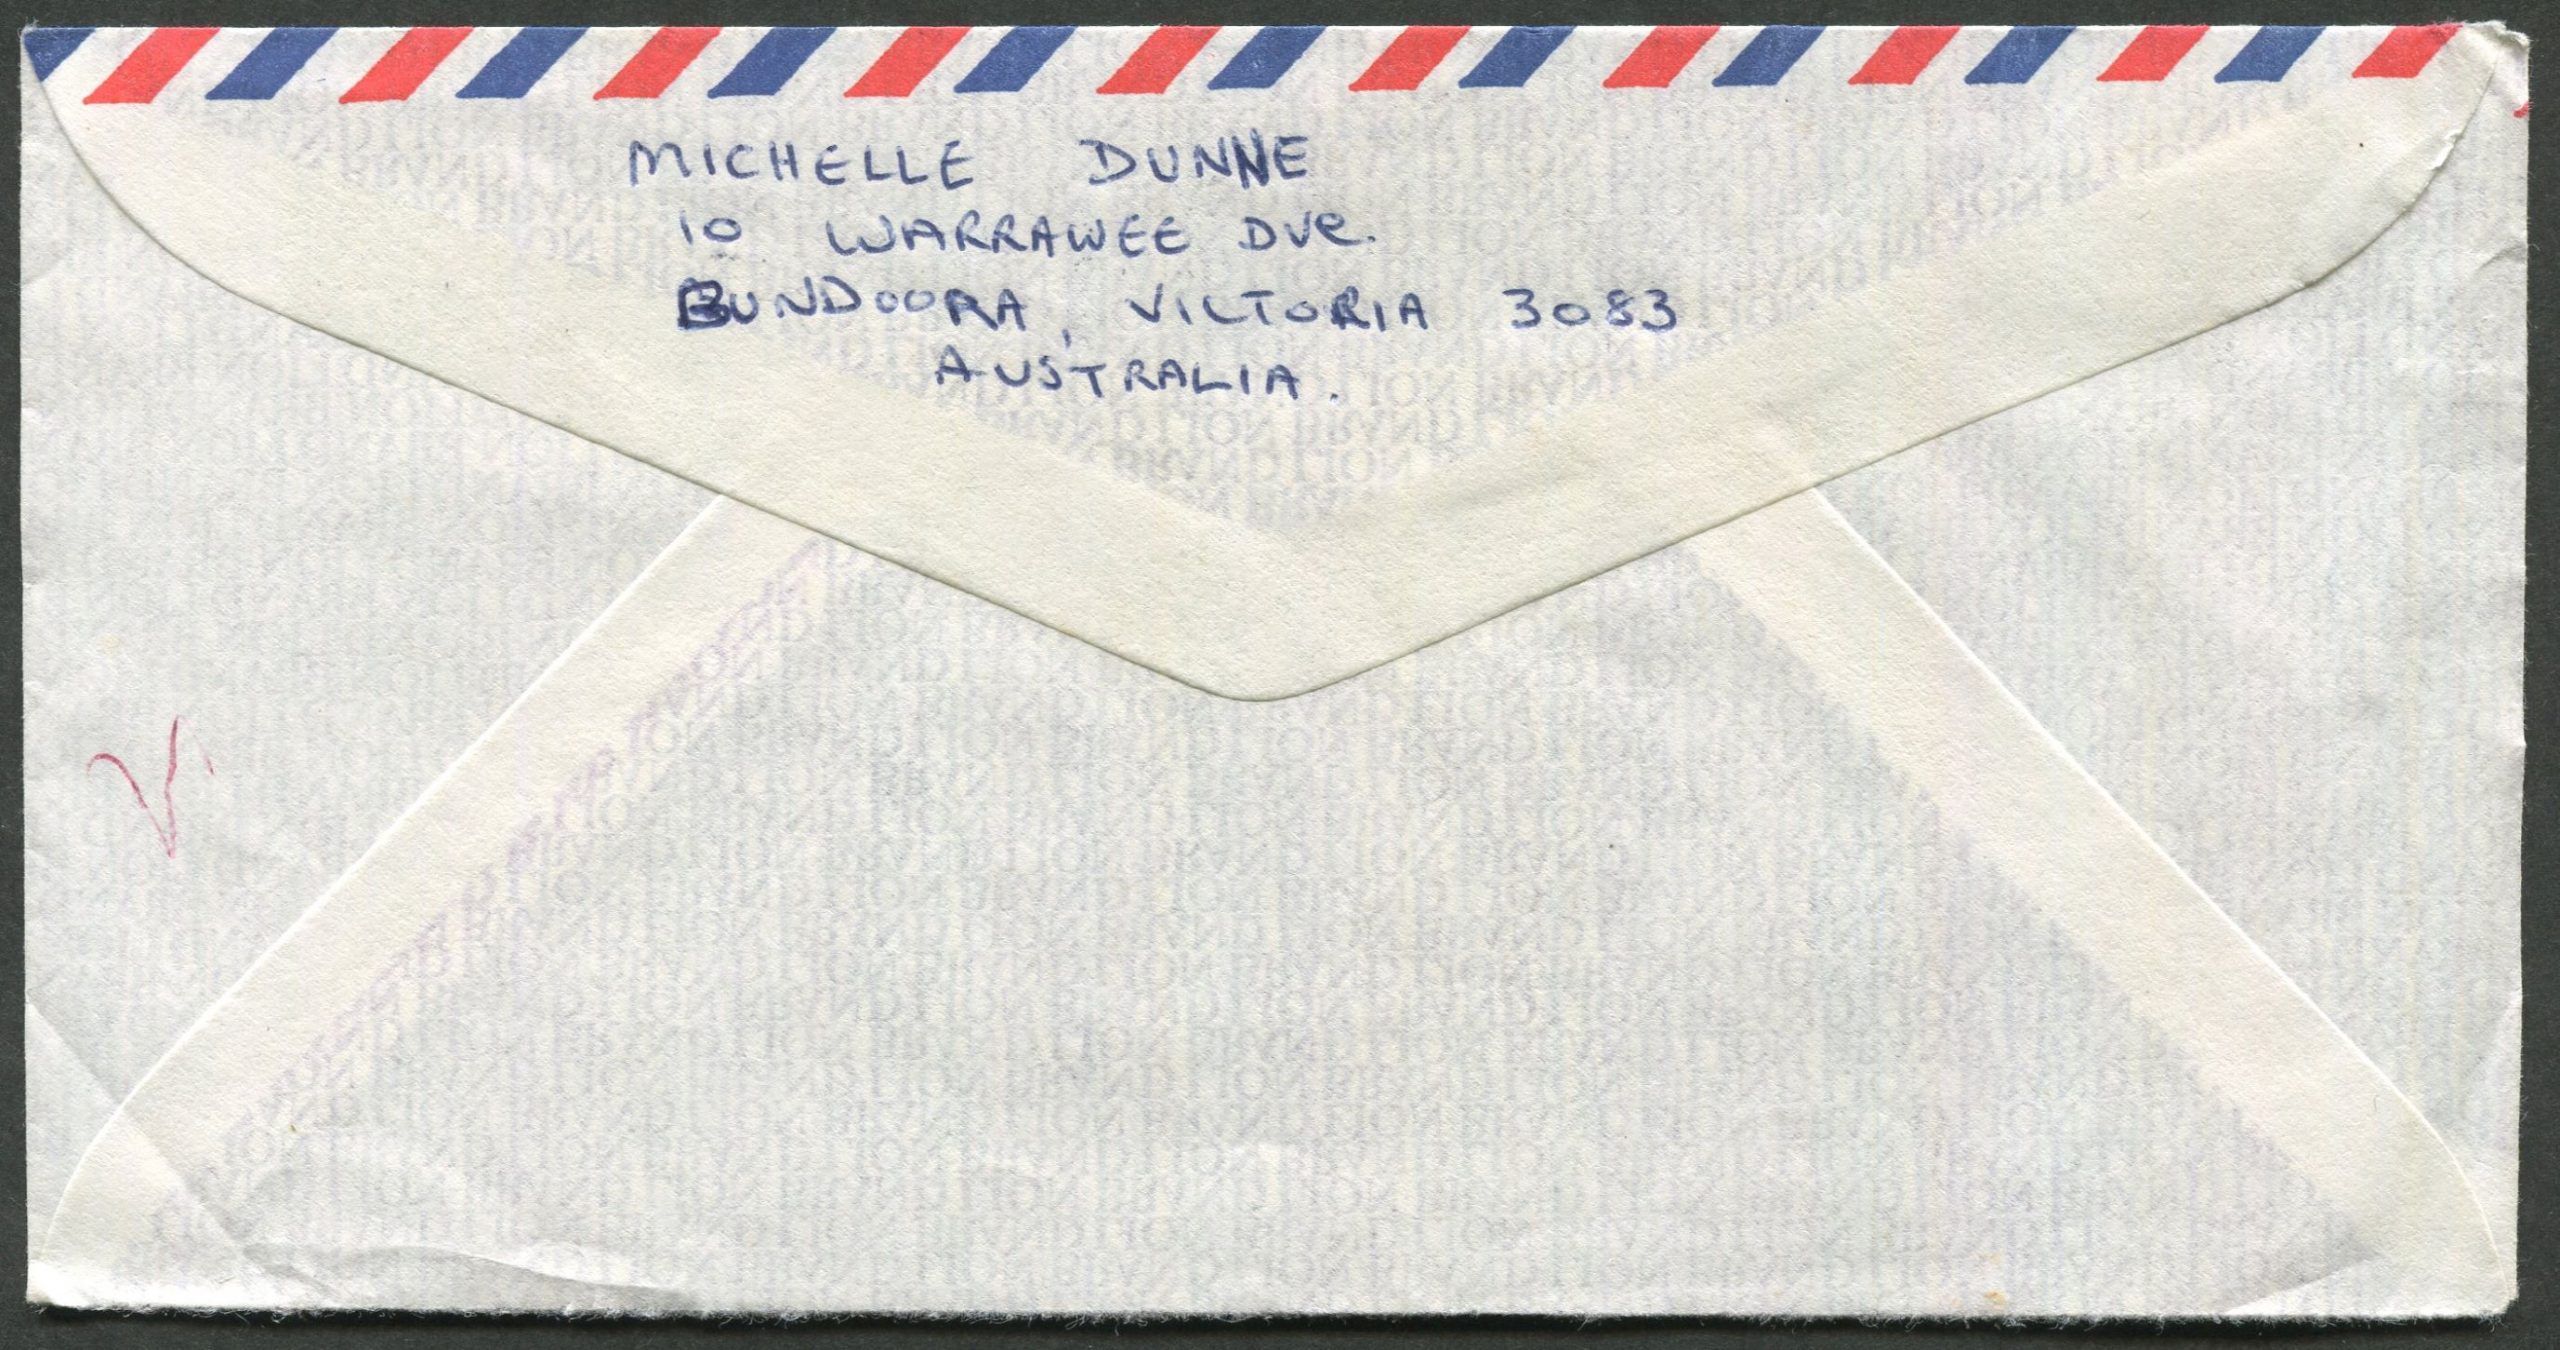 MICHELLE DUNNE
10 WARRAWEE DVE.
BUNDOORA, VICTORIA 3083
AUSTRALIA.